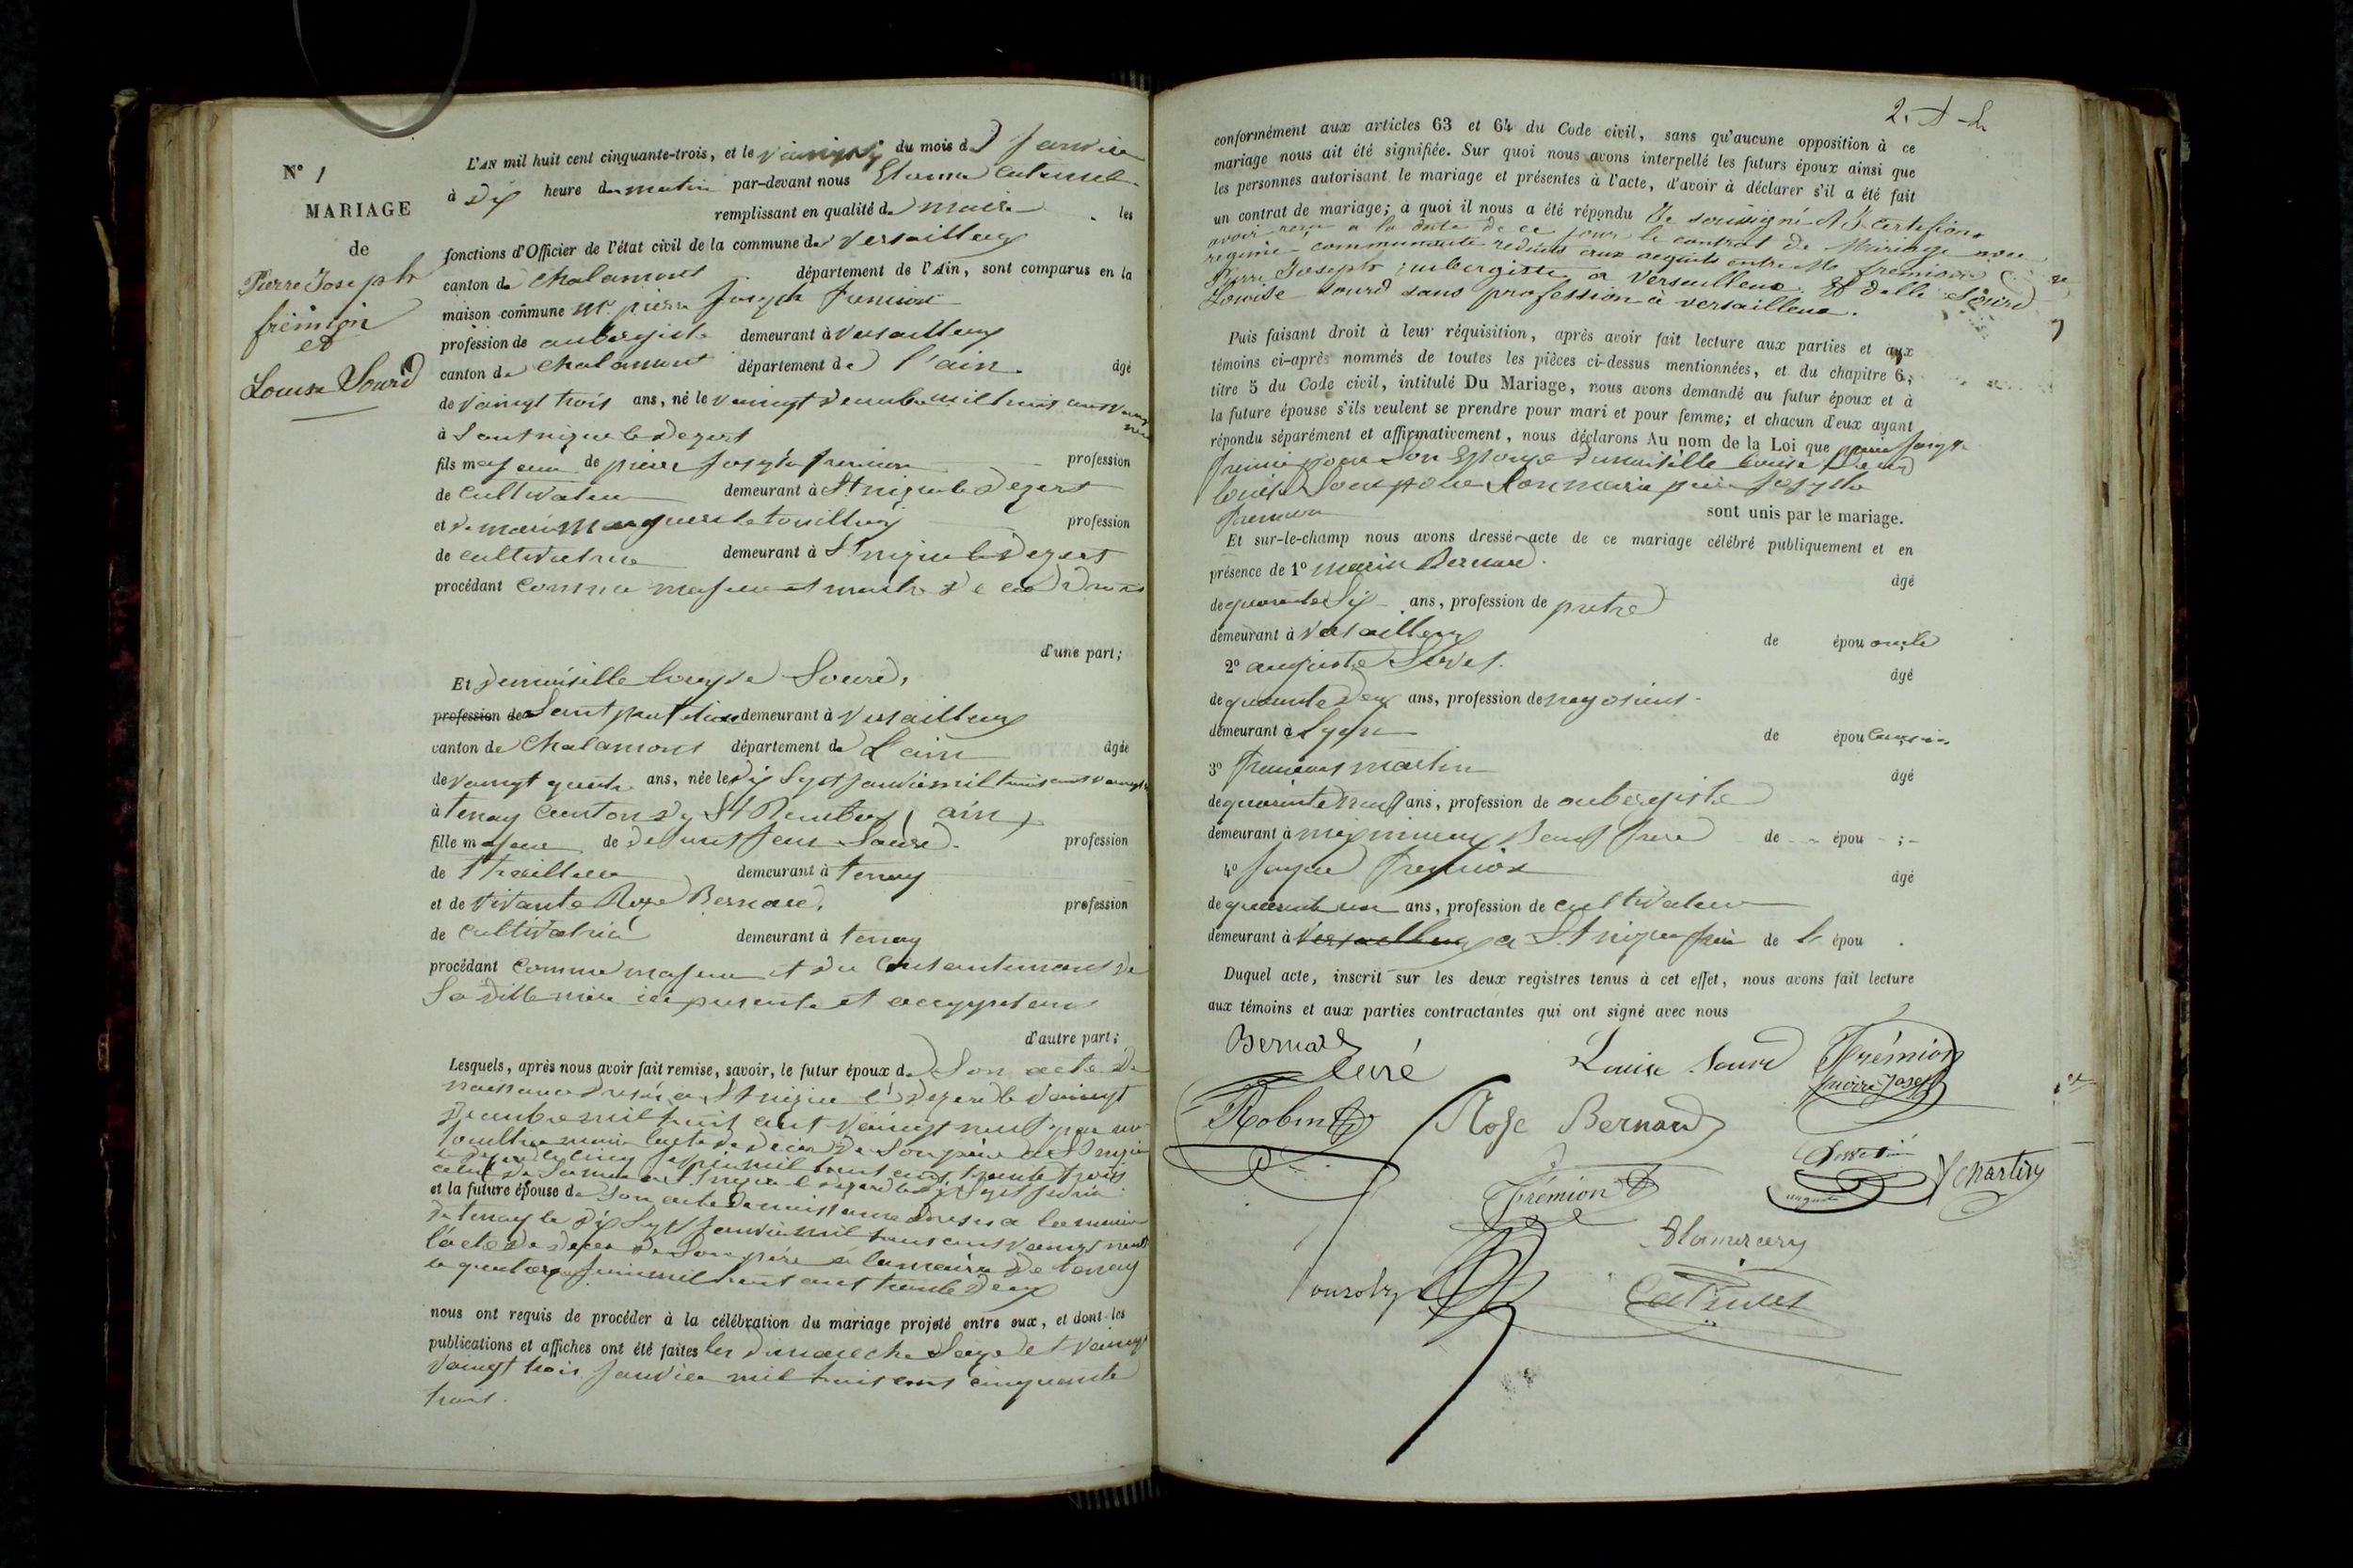 N° 1
MARIAGE
de
Pierre Joseph
frémion
et
Louise Sourd
L'AN mil huit cent cinquante-trois, et le du mois de Janvier
à dix heure du matin par-devant nous
remplissant en qualité de maire les
fonctions d'Officier de l'état civil de la commune de Versailleux
canton de Chalamont département de l'Ain, sont comparus en la
maison commune Mr pierre Joseph fremion
profession de aubergiste demeurant à Versailleux
canton de Chalamont département de l'ain. âgé
de vaingt trois ans, né le vaingt decembre mil huit cent vaingt neuf
à
fils majeur de pierre Joseph fremion profession
de cultivateur demeurant à St nizier le Dezert
et de marie Marguerite profession
de cultivatrice demeurant à St nizier le Dezert
procédant comme majeur et maitre de ces droits
d'une part;
Et demoiselle Louyse Sourd,
profession de Sant profetion demeurant à Versailleux
canton de Chalamont département de L'ain âgée
de vaingt quatre ans, née le dix Sept Janvier mil huit cent vaingt
à tenay canton de St Rambert (ain)
fille majeure de defunt Jean Sourd. profession
de tailleur demeurant à tenay
et de vivante Roze Bernard, profession
de cultivatrice demeurant à tenay
procédant comme majeure et du consentement de
Sa ditte mère ici presente et acceptant
d'autre part;
Lesquels, après nous avoir fait remise, savoir, le futur époux de Son acte de
naissance dressé a St nizier le Dezert le vaingt
decembre mil huit cent vaingt neuf par
maire l'acte de décès de Son père a St nizier
mil huit cent trente trois
celui de
et la future épouse de Son acte de naissance dressé a la mairie
de tenay le dix Sept Janvier mil huit cent vaingt neuf
l'acte de deces de Son père à la mairie de tenay
le quatorze Juin mil huit cent trente deux
nous ont requis de procéder à la célébration du mariage projeté entre eux, et dont les
publications et affiches ont été faites les dimanche Seize et vaingt
vaingt trois Janvier mil huit cent cinquante
trois.
2.
conformément aux articles 63 et 64 du Code civil, sans qu'aucune opposition à ce
mariage nous ait été signifiée. Sur quoi nous avons interpellé les futurs époux ainsi que
les personnes autorisant le mariage et présentes à l'acte, d'avoir à déclarer s'il a été fait
un contrat de mariage; à quoi il nous a été répondu Je soussigné certifions
avoir reçu a la date de ce jour le contrat de Mariage avec
regime communauté reduite aux aquets entre Mr fremion
Pierre Joseph aubergiste a Versailleux. Et delle Sourd
Louise sourd sans profession à versailleux.
Puis faisant droit à leur réquisition, après avoir fait lecture aux parties et aux
témoins ci-après nommés de toutes les pièces ci-dessus mentionnées, et du chapitre 6,
titre 5 du Code civil, intitulé Du Mariage, nous avons demandé au futur époux et à
la future épouse s'ils veulent se prendre pour mari et pour femme; et chacun d'eux ayant
répondu séparément et affirmativement, nous déclarons Au nom de la Loi que pierre Joseph
fremion pour Son Epouze demoiselle Louise Sourd
Louise Sourd pour Son mari pierre Joseph
fremion sont unis par le mariage.
Et sur-le-champ nous avons dressé acte de ce mariage célébré publiquement et en
présence de 1° marin Bernard. âgé
de quarente Six ans, profession de pretre
demeurant à Versailleux de épou oncle
2° auguste âgé
de quarente deux ans, profession de negosient
demeurant à Lyon de épou cousin
3° francois martin âgé
de quarinte neuf ans, profession de aubergiste
demeurant à Beauf frere de épou ;
4° Joseph fremion âgé
de quarente un ans, profession de cultivateur
demeurant à Versailleux a St nizier frere de l' épou .
Duquel acte, inscrit sur les deux registres tenus à cet effet, nous avons fait lecture
aux témoins et aux parties contractantes qui ont signé avec nous
Bernard
curé
Louise Sourd
Frémion
pierre Joseph
Robin
Rose Bernard
Frémion
Martin